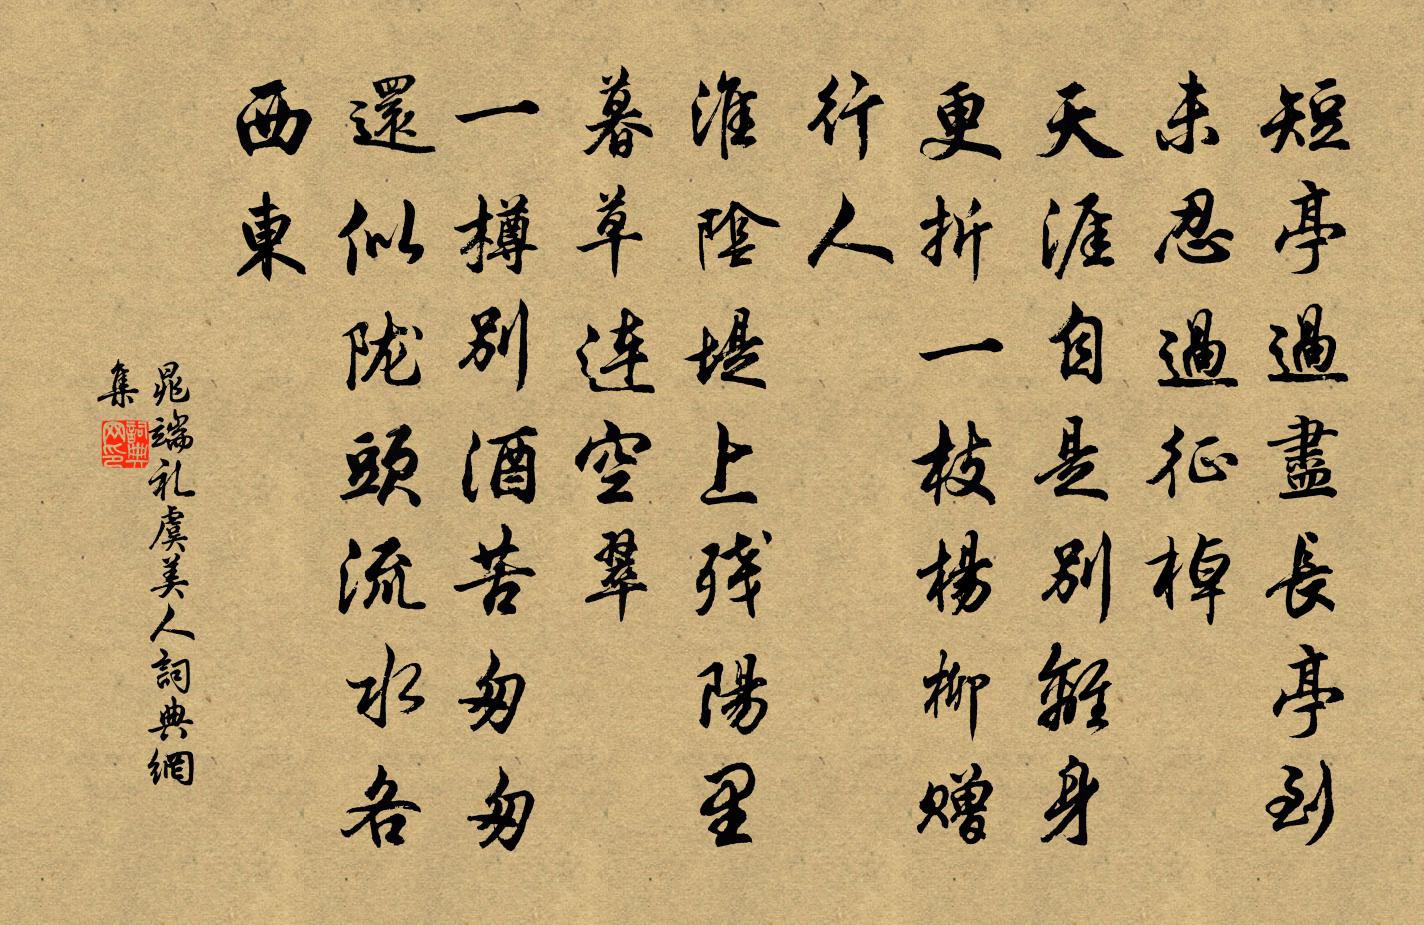 短亭過盡長亭到
未忍過征棹
天涯自是别離身
更折一枝楊柳贈
行人
淮陰堤上残陽里
暮草連空翠
一樽别酒苦匆匆
還似陇頭流水各
西東
晁端礼虞美人詞典網
集
詞典
网印